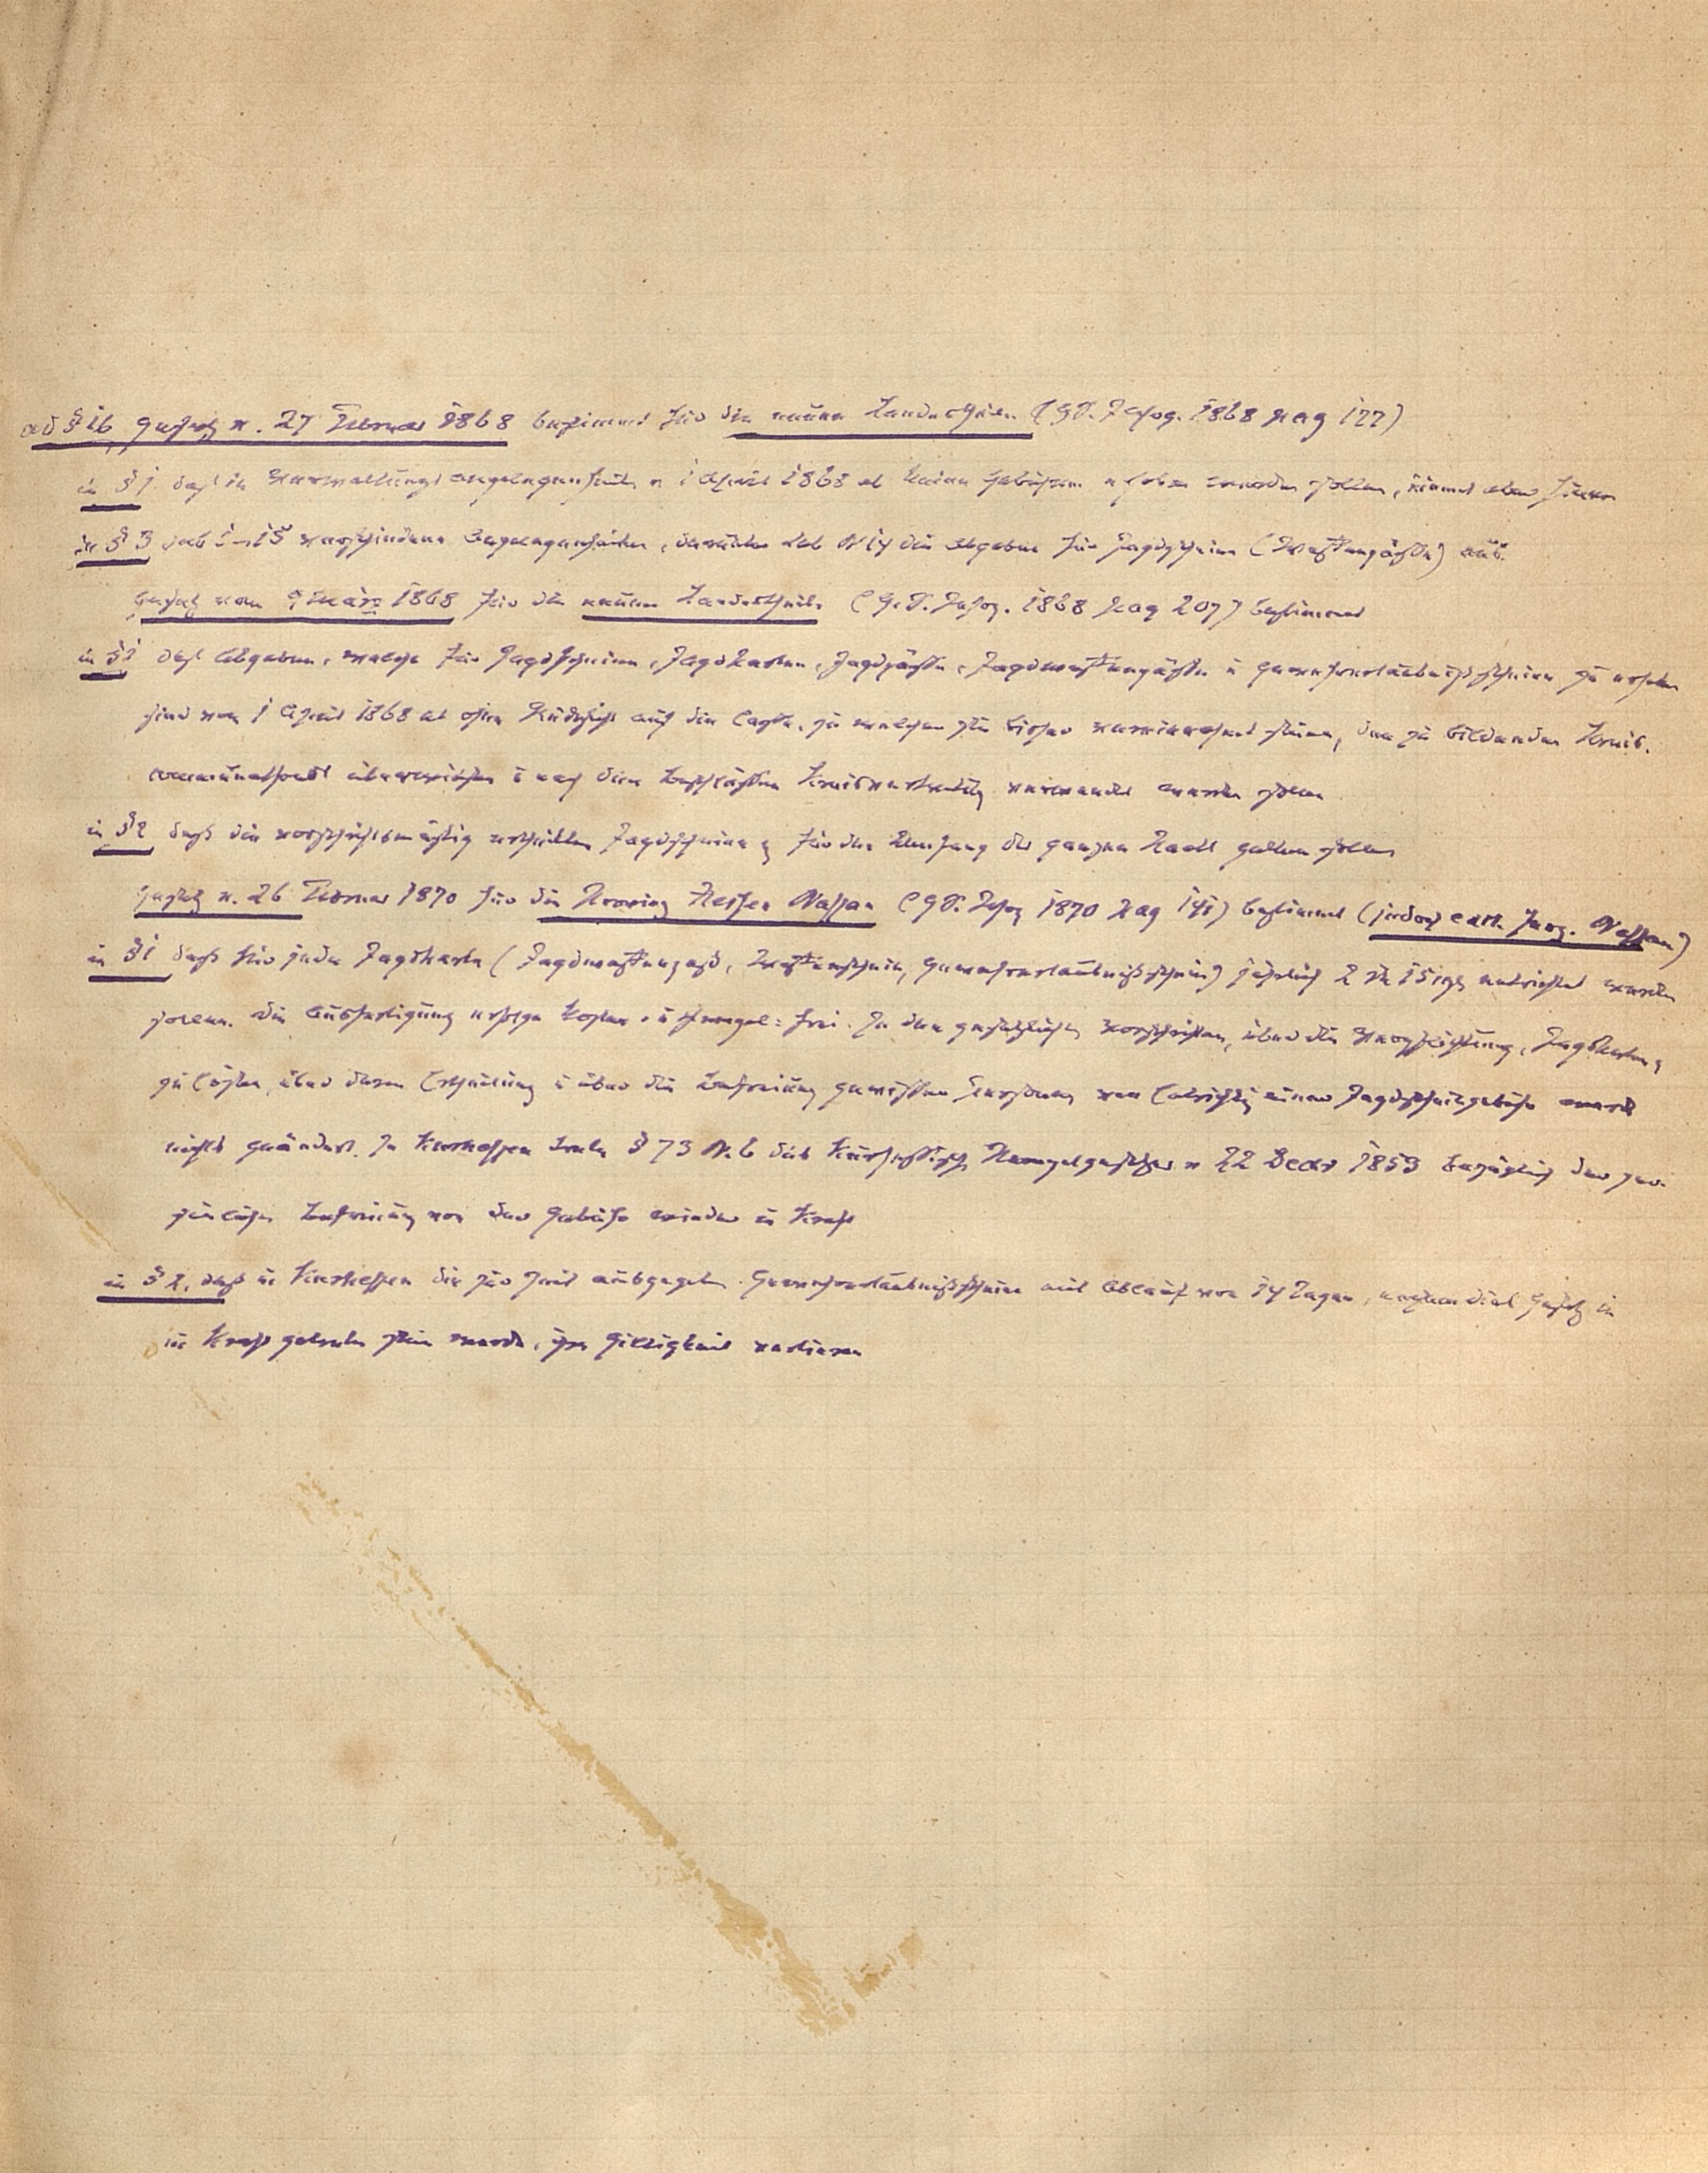 ad § 16 Gesetz v. 27 Februar 1868 bestimmt für die neuen Landestheile (G.S. 1868 pag 177)
in § 1 daß in Verwaltungsangelegenheiten v 1 April 1868 ab keine Gebühren erhoben werden sollen, nimmt aber hievon
in § 3 sub 1-15 verschiedene Angelegenheiten, darunter sub N 14 die Abgaben für Jagdscheine (Waffenpässe) aus.
Gesetz vom 9 März 1868 für die neuen Landestheile (G.S. 1868 pag 207) bestimmt
in § 1 daß Abgaben, welche für Jagdscheine, Jagdkarten, Jagdpässe, Jagdwaffenpässe u Gewehrerlaubnißscheine zu erheben
sind vom 1 April 1868 ab ohne Rücksicht auf die Casse, zu welcher sie bisher vereinnahmt seien, den zu bildenden Kreis-
communalfonds überwiesen u nach den Beschlüssen Kreisvertretung verwendet werden sollen
in § 2 daß die vorschriftsmäßig ertheilten Jagdscheine für den Umfang des ganzen Staats gelten sollen
Gesetz v. 26 Februar 1870 für die Provinz Hessen Nassau (G.S. 1870 pag 141) bestimmt (jedoch Nassau)
in § 1 daß für jede Jagdkarte (Jagdwaffenpaß, Waffenschein, Gewehrerlaubnißschein) jährlich 2 15 entrichtet werden
sollen. Die Ausfertigung erfolge kosten- u stempel=frei. In den gesetzlichen Vorschriften, über die Verpflichtung, Jagdkarten
zu lösen, über deren Ertheilung u über die Befreiung gewisser Personen von Entrichtg einer Jagdscheingebühr werde
nichts geändert. In Kurhessen trete § 73 N. 6 des Kurhessisch Stempelgesetzes v 22 Decbr 1853 bezüglich der per-
sönlichen Befreiung von der Gebühr wieder in Kraft
in § 2, daß in Kurhessen die zur Zeit ausgegeben Gewehrerlaubnißscheine mit Ablauf von 14 Tagen, nachdem dies Gesetz in
in Kraft getreten sein werde, ihre Giltigkeit verlieren